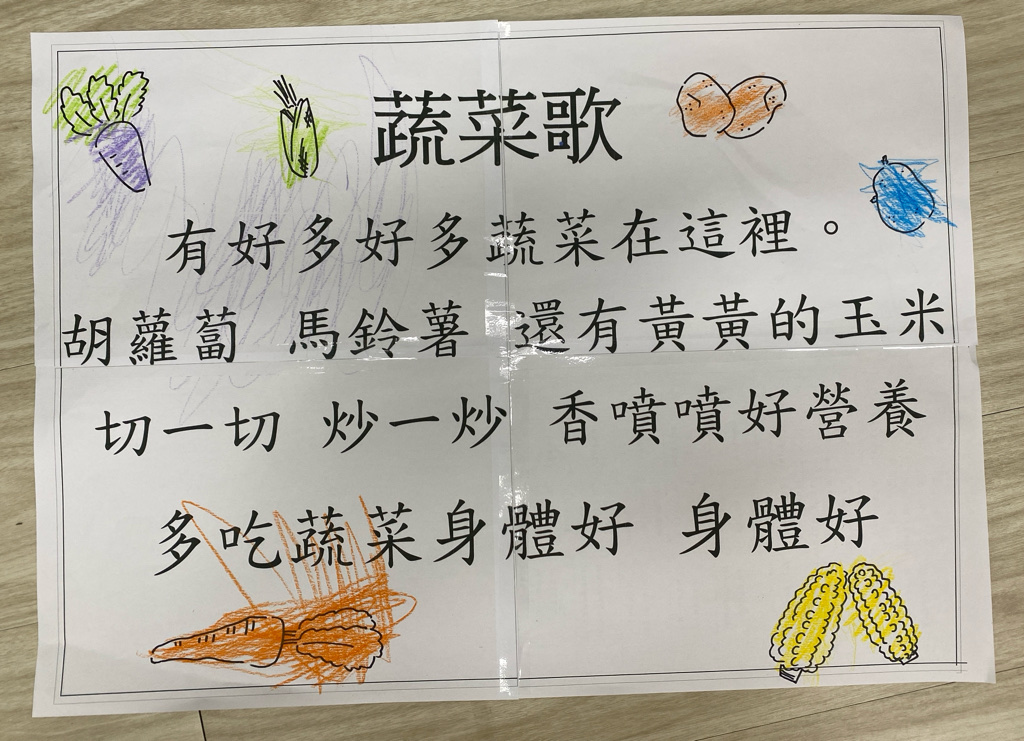 蔬菜歌
有好多好多蔬菜在這裡。
胡蘿蔔 馬鈴薯 還有黃黃的玉米
切一切 炒一炒 香噴噴好營養
多吃蔬菜身體好 身體好